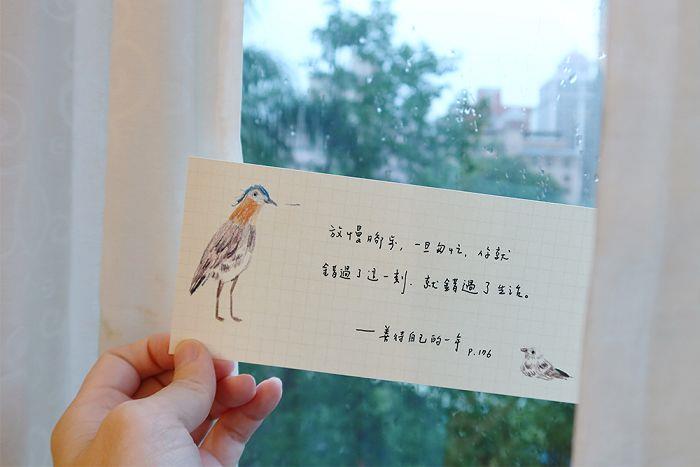 放慢腳步，一旦匆忙，你就
錯過了這一刻．就錯過了生活。
——善待自己的一年
P.106